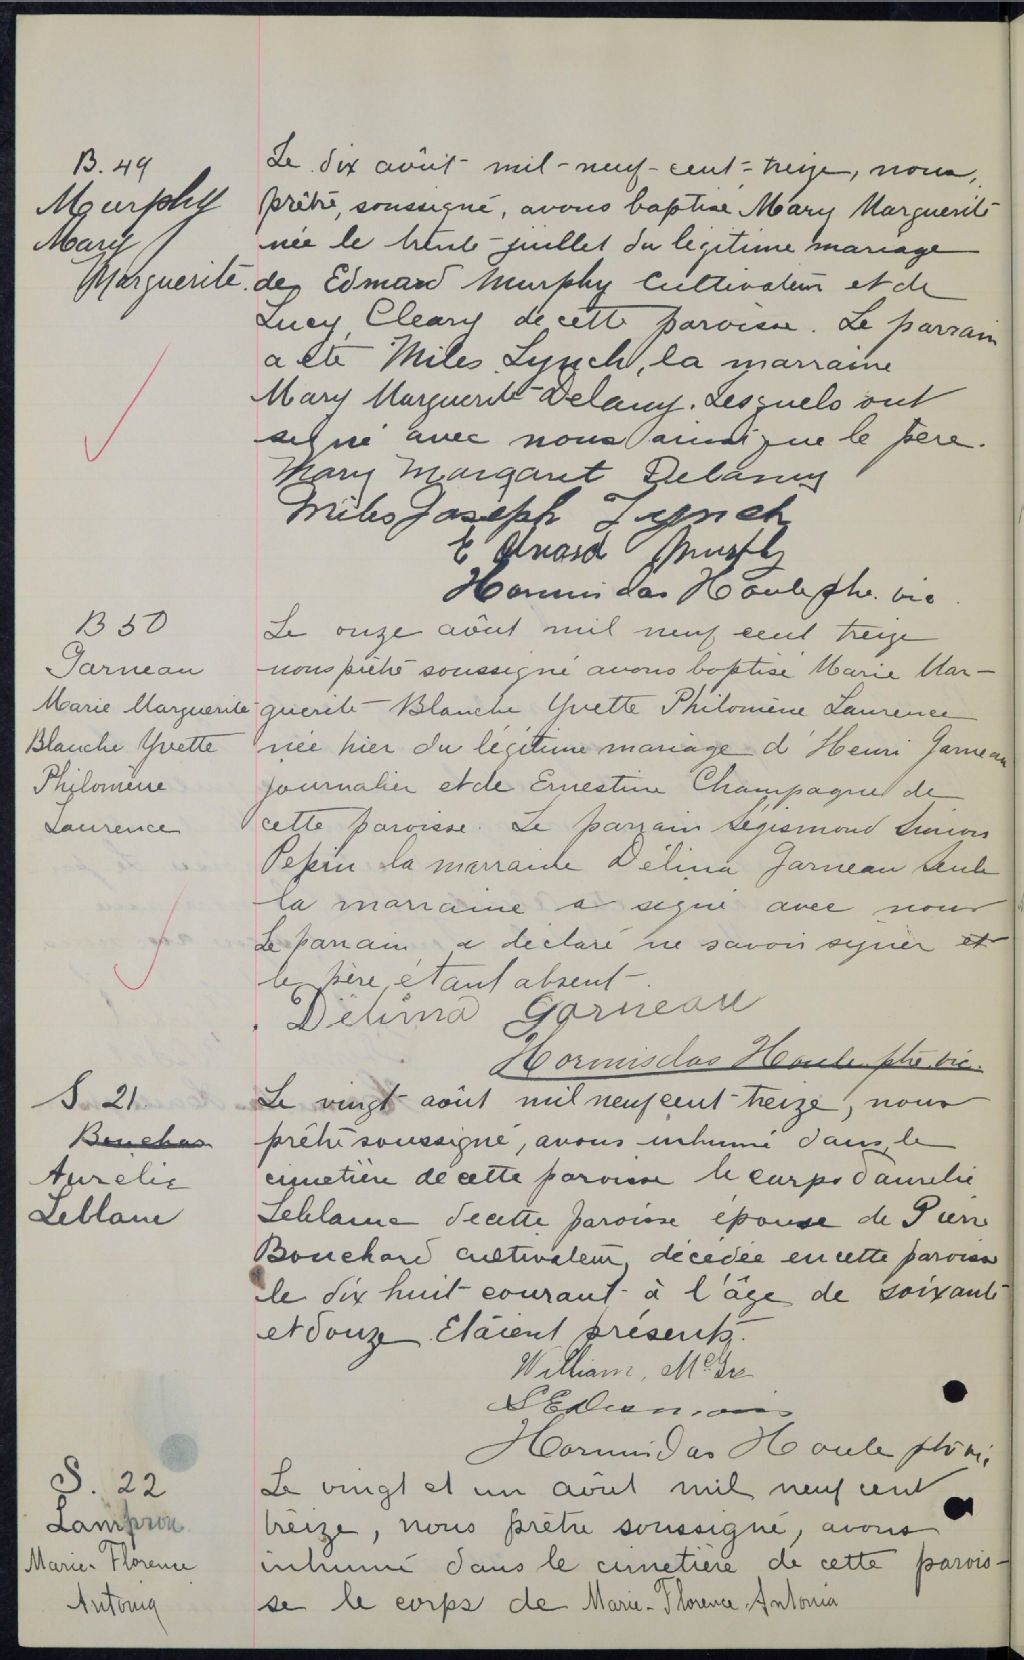 B. 49
Murphy
Mary
Marguerite.
Le dix août mil-neuf-cent-treize, nous,
prêtre, soussigné, avons baptisé Mary Marguerite
née le trente-juillet du légitime mariage
de Edmard Murphy Cultivateur et de
Lucy Cleary de cette paroisse. Le parrain
a été Miles Lynch, la marraine
Mary Marguerite Delany. Lesquels ont
signé avec nous ainsi que le père.
Mary Margaret Delaney
Miles Joseph Lynch
Murphy
Hormisdas Houle ptre. vic.
B 50
Garneau
Marie Marguerite
Blanche Yvette
Philomène
Laurence
Le onze août mil neuf cent treize
nous prêtre soussigné avons baptisé Marie Mar-
guerite Blanche Yvette Philomène Laurence
née hier du légitime mariage d'Henri Garneau
journalier et de Ernestine Champagne de
cette paroisse. Le parrainSégismond
Pepin la marraine Délina Garneau seule
la marraine a signé avec nous
Le parrain a déclaré ne savoir signer et
le père étant absent.
Délima Garneau
Hormisdas Houle ptre. vic.
S 21
Aurélie
Leblanc
Le vingt août mil neuf cent-treize, nous
prêtre soussigné, avons inhumé dans le
cimetière de cette paroisse le corps d'aurelie
Leblanc de cette paroisse épouse de Pierre
Bouchard cultivateur, décédée en cette paroisse
le dix huit courant à l'âge de soixante
et douze. Etaient présents.
William
Hormisdas Houle ptre vic.
S. 22
Lampron
Marie-Florence
Antonia
Le vingt et un août mil neuf cent
treize, nous prêtre soussigné, avons
inhumé dans le cimetière de cette parois-
se le corps de Marie-Florence-Antonia